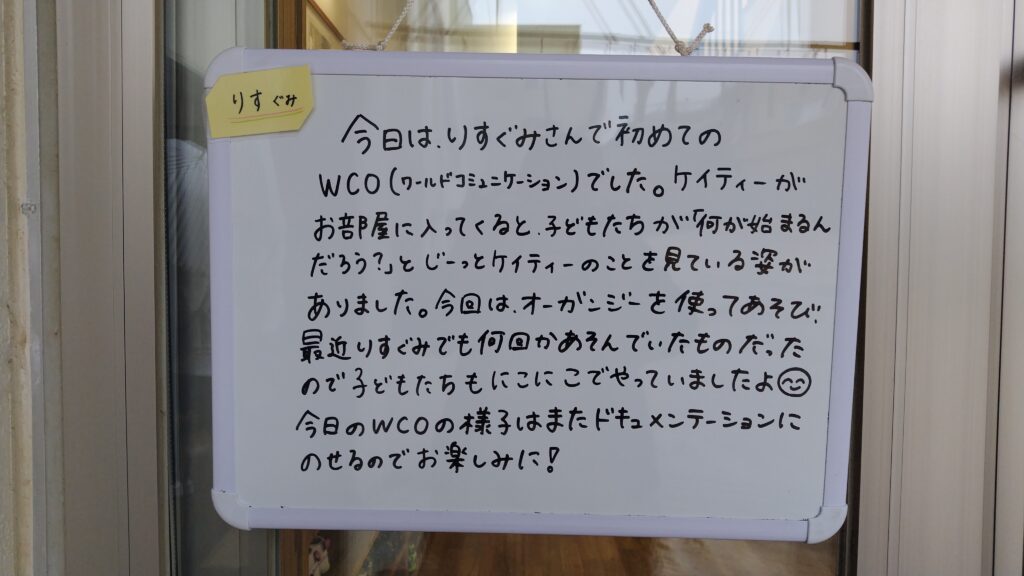 りすぐみ
今日は、りすぐみさんで初めての
WCO(ワールドコミュニケーション)でした。ケイティーが
お部屋に入ってくると、子どもたちが「何が始まるん
だろう?」とじーっとケイティーのことを見ている姿が
ありました。今回は、オーガンジーを使ってあそび、
最近りすぐみでも何回かあそんでいたものだった
ので子どもたちもにこにこでやっていましたよ😊
今日のWCOの様子はまたドキュメンテーションに
のせるのでお楽しみに!